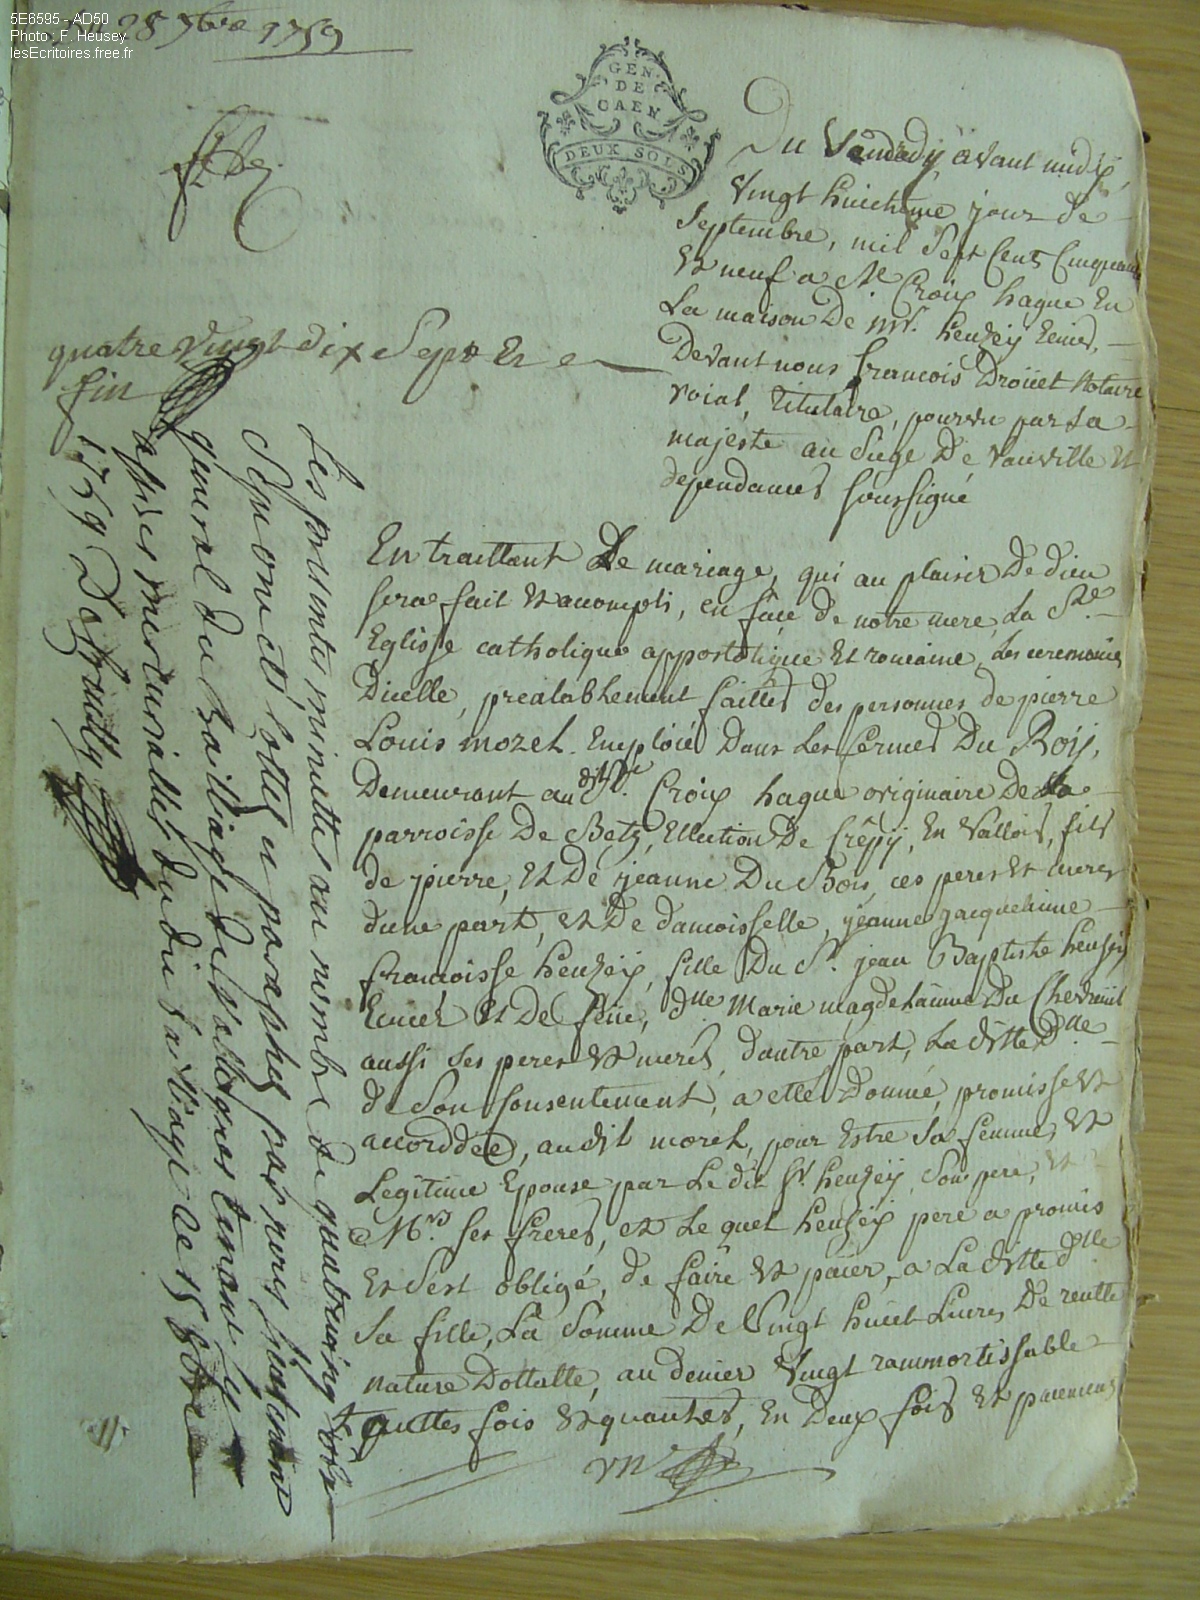 5E6595 - AD50
Photo : F. Heusey
lesEcritoires.free.fr
28 7bre 1759
GEN.
DE
CAEN
DEUX SOLS
Du Vendredy, avant midy,
Vingt huictieme jour de
Septembre, mil Sept Cents Cinquante
Et neuf a Ste Croix hague En
La maison De Mr. heuzey Ecuier,
Devant nous francois Droüet Notaire
roial, titulaire, pourvu par sa
majeste au Siege De Vauville Et
dependances soussigné
quatre Vingt dix Sept Et e
fin
En traittant De mariage, qui au plaisir De dieu
sera fait Et acompli, en façe de notre mere La Ste
Eglisse catholique appostolique Et romaine, Les ceremonies
Dicelle, prealablement faittes des personnes de pierre
Louis mozel. Emploié Dans Les fermes Du Roy,
Demeurant audit Ste. Croix hague originaire De La
parroisse De Betz, Ellection De Crêpy, En Vallois, fils
de pierre, Et De jeanne Du Bois, ces peres Et meres
dune part, et De damoisselle, jeanne jacquelinne
francoisse heuzëy, fille Du Sr. jean Baptiste heuzëy
Ecuier Et De feüe, dlle Marie magdelainne Du Chevreüil
aussi ses peres Et meres, dautre part, La ditte Dlle
de Son Consentement, a etté Donnée, promisse et
accorddée, audit morel, pour Estre Sa femme, et
Legitime Epouse par Le dit Sr. heuzëy, Son pere, et
Mrs. ses freres, et Le quel heuzëy pere a promis
Et Sest obligé, de faire Et paier, a La ditte dlle
Sa fille, La Somme De Vingt huict Livres De rentte
nature Dottalle, au denier Vingt rammortissable
touttes fois Et quantes, En Deux fois et paiemens
Les presentes minuttes au nombre de quatreving
Se sont cottés et paraphés par nous
general du Bailliage de Vallognes
assises mercurialles dudit Bailliage Le 15 8bre
1759